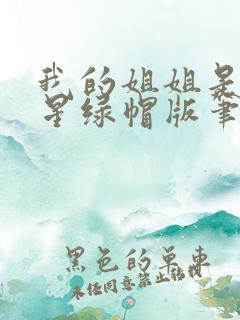 我的姐姐是
星绿帽版笔
黑色的单车
未经同意禁止转载